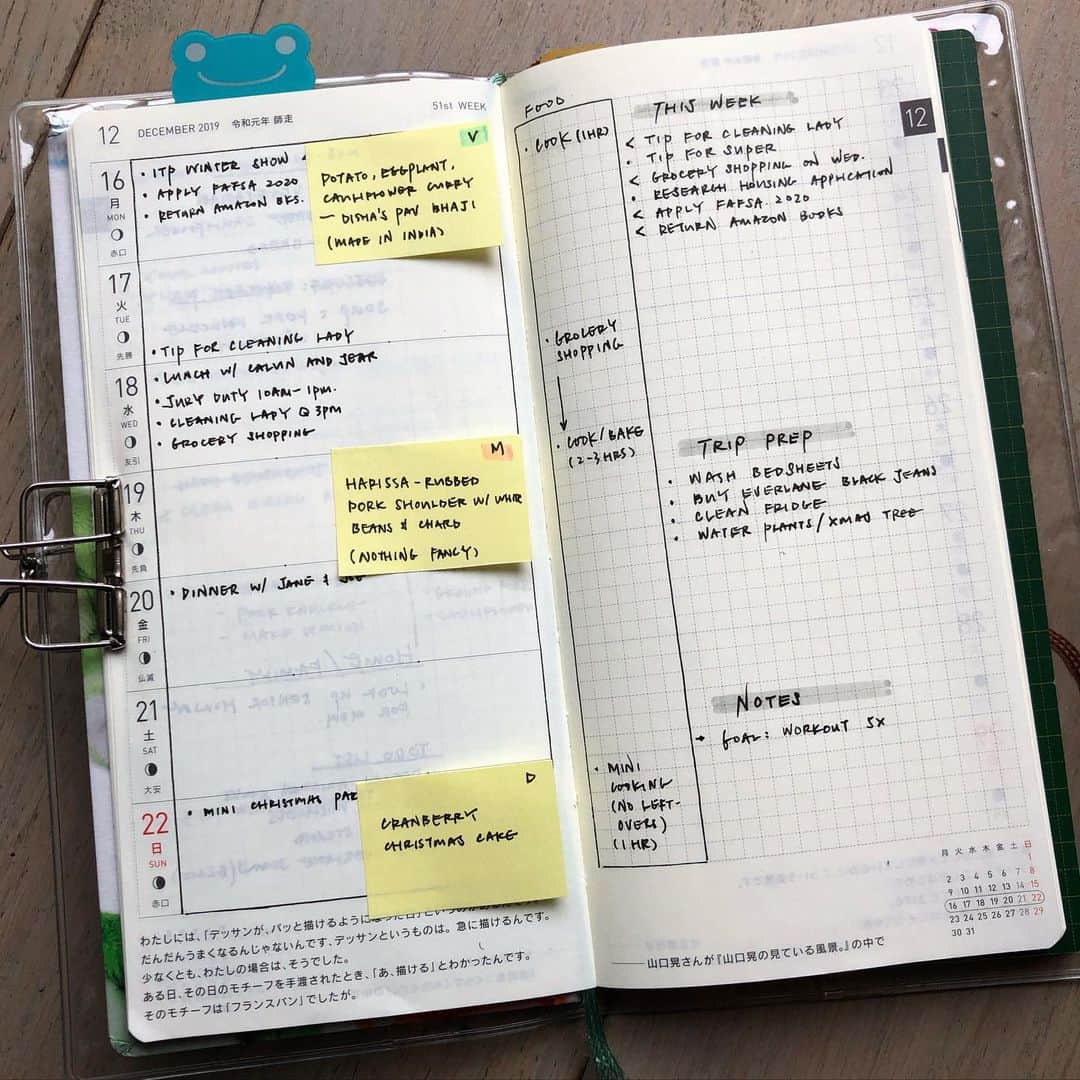 51st WEEK
12 DECEMBER 2019 令和元年 師走
16
月
MON
赤口
• ITP WINTER SHOW
• APPLY FAFSA 2020
• RETURN AMAZON BKS.
V
POTATO, EGGPLANT,
CAULIFLOWER CURRY
— DISHA'S PAV BHAJI
(MADE IN INDIA)
17
火
TUE
先勝
• TIP FOR CLEANING LADY
18
水
WED
友引
• LUNCH W/ CALVIN AND JEAR
• JURY DUTY 10AM-1PM.
• CLEANING LADY @ 3PM
• GROCERY SHOPPING
19
木
THU
先負
M
HARISSA-RUBBED
PORK SHOULDER W/ WHITE
BEANS & CHARD
(NOTHING FANCY)
20
金
FRI
仏滅
• DINNER W/ JANE &
21
土
SAT
大安
22
日
SUN
赤口
• MINI CHRISTMAS PAR
D
CRANBERRY
CHRISTMAS CAKE
わたしには、「デッサンが、パッと描けるようになった日」というのがあるんです。
だんだんうまくなるんじゃないんです、デッサンというものは。急に描けるんです。
少なくとも、わたしの場合は、そうでした。
ある日、その日のモチーフを手渡されたとき、「あ、描ける」とわかったんです。
そのモチーフは「フランスパン」でしたが。
FOOD
• COOK (1HR)
• GROCERY
SHOPPING
• COOK/BAKE
(2-3HRS)
• MINI
COOKING
(NO LEFT-
OVERS)
(1HR)
THIS WEEK
< TIP FOR CLEANING LADY
• TIP FOR SUPER
< GROCERY SHOPPING ON WED.
• RESEARCH HOUSING APPLICATION
< APPLY FAFSA 2020
< RETURN AMAZON BOOKS
12
TRIP PREP
• WASH BEDSHEETS
• BUY EVERLANE BLACK JEANS
• CLEAN FRIDGE
• WATER PLANTS/XMAS TREE
NOTES
→ GOAL: WORKOUT 5X
月 火 水 木 金 土 日
1
2 3 4 5 6 7 8
9 10 11 12 13 14 15
16 17 18 19 20 21 22
23 24 25 26 27 28 29
30 31
——山口晃さんが『山口晃の見ている風景。』の中で